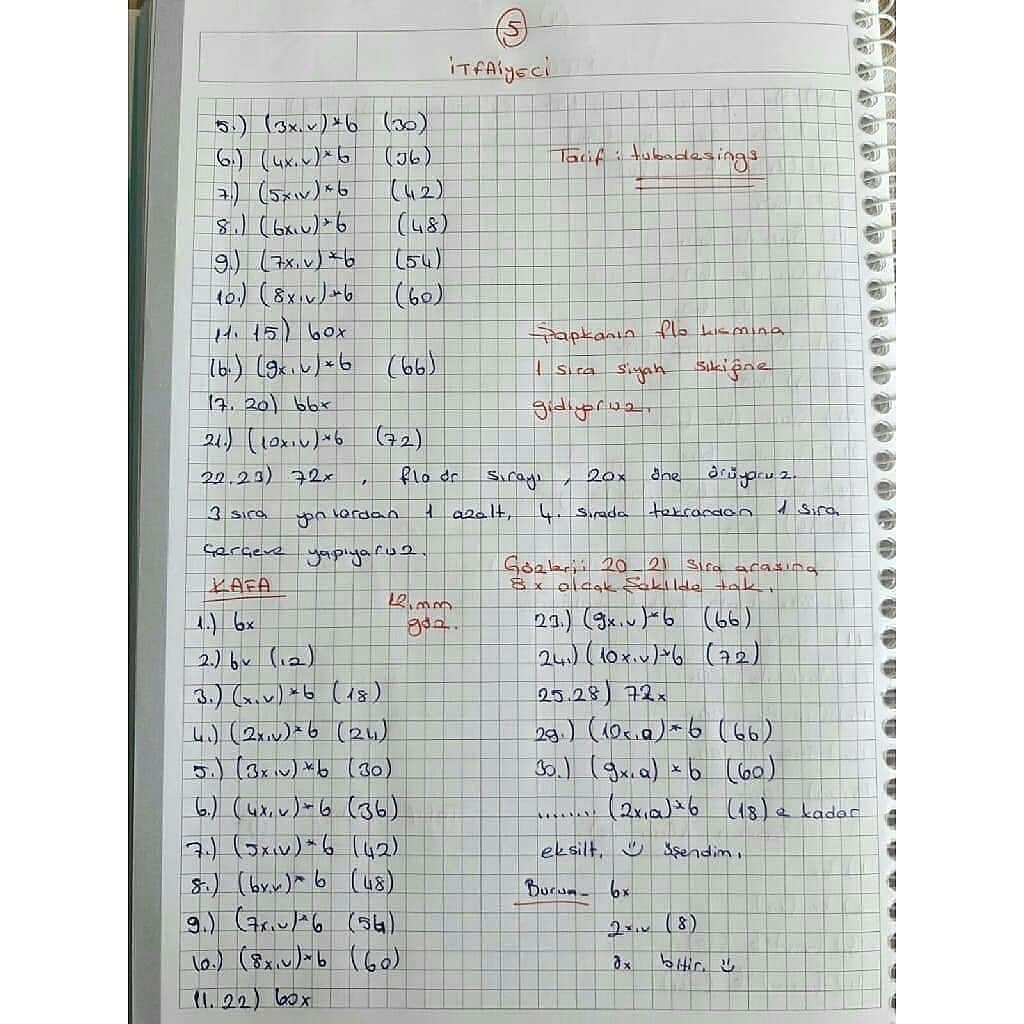 5
İTFAİYECİ
5.) (3x,v)*6 (30)
6.) (4x,v)*6 (36)
Tarif : tubadesings
7.) (5x,v)*6 (42)
8.) (6x,v)*6 (48)
9.) (7x,v)*6 (54)
10.) (8x,v)*6 (60)
11. 15) 60x
16.) (9x,v)*6 (66)
17. 20) 66x
21.) (10x,v)*6 (72)
Şapkanın flo kısmına
1 sıra siyah sıkiğne
gidiyoruz.
22.23) 72x , flo dr sırayı , 20x öne örüyoruz.
3 sıra yanlardan 1 azalt, 4. sırada tekrardan 1 sıra
çerçeve yapıyoruz.
KAFA
12.mm
göz.
1.) 6x
2.) 6v (12)
3.) (x,v)*6 (18)
4.) (2x,v)*6 (24)
5.) (3x,v)*6 (30)
6.) (4x,v)*6 (36)
7.) (5x,v)*6 (42)
8.) (6x,v)*6 (48)
9.) (7x,v)*6 (54)
10.) (8x,v)*6 (60)
11. 22) 60x
Gözleri: 20_21 sıra arasına
8x olcak Şekilde tak.
23.) (9x,v)*6 (66)
24.) (10x,v)*6 (72)
25.28) 72x
29.) (10x,a)*6 (66)
30.) (9x,a)*6 (60)
........ (2x,a)*6 (18) e kadar
eksilt. üşendim.
Burun_ 6x
2x,v (8)
8x bitir.